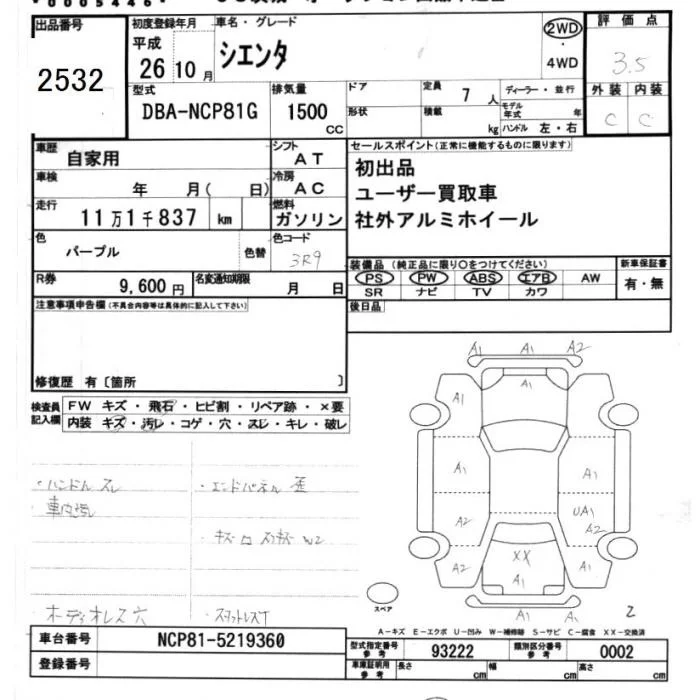 V0005446V
出品番号
2532
初度登録年月
平成
26年10月
車名・グレード
シエンタ
2WD
4WD
評価点
3.5
外装 内装
C C
型式
DBA-NCP81G
排気量
1500
CC
ドア
形状
定員
7 人
積載
kg
ディーラー・並行
モデル年式 年
ハンドル 左・右
車歴 自家用
シフト AT
車検 年 月( 日)
冷房 AC
走行 11万1千837 km
燃料 ガソリン
色 パープル 色替
色コード 3R9
R券 9,600円
名変通知期限 月 日
セールスポイント(正常に機能するものに限ります)
初出品
ユーザー買取車
社外アルミホイール
装備品 (純正品に限り○をつけてください)
PS PW ABS エアB AW
SR ナビ TV カワ
新車保証書
有・無
後日品
注意事項申告欄(不具合内容等は具体的に記入して下さい)
修復歴 有〔箇所 〕
検査員記入欄
FW キズ・飛石・ヒビ割・リペア跡・×要
内装 キズ・汚レ・コゲ・穴・スレ・キレ・破レ
・ハンドル スレ
・エンドパネル 歪
ボディオレス穴
・スタットレスT
A1 A1 A2
A1
A1 A1
A2 UA1 A2
XX
A2 A1 A1
スペア
2
A-キズ E-エクボ U-凹み W-補修跡 S-サビ C-腐食 XX-交換済
車台番号 NCP81-5219360
登録番号
型式指定番号 参考 93222
類別区分番号 参考 0002
車庫証明用 参考 長さ cm 幅 cm 高さ cm